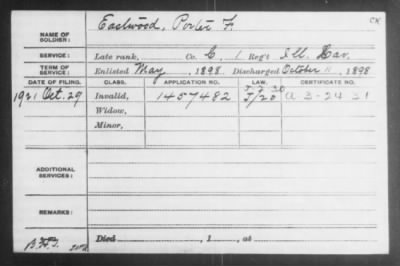 Eastwood, Porter F. CK
NAME OF SOLDIER:
SERVICE: Late rank, Co. C, 1 Reg't Ill. Cav.
TERM OF SERVICE: Enlisted May, 1898 Discharged October 11, 1898
DATE OF FILING. CLASS. APPLICATION NO. LAW. CERTIFICATE NO.
1921 Oct. 29 Invalid, 1457482 J/20 A 3-24 31
Widow,
Minor,
ADDITIONAL SERVICES:
REMARKS:
Died , 1 , at